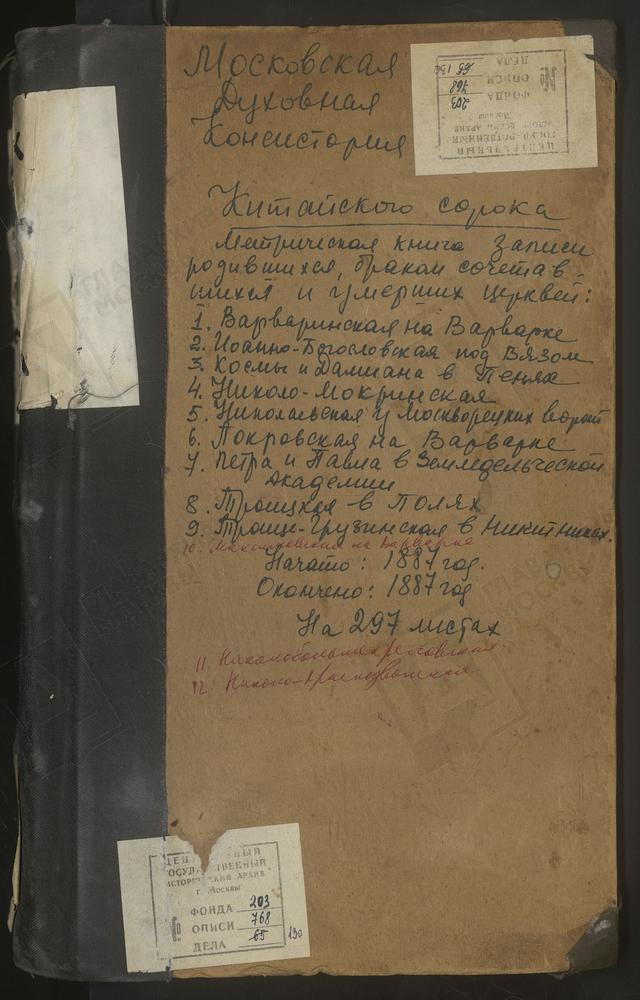 Московская
Духовная
Консистория
ЦЕНТРАЛЬНЫЙ
ГОСУДАРСТВЕННЫЙ
ИСТОР. АРХИВ
г. Москвы
ФОНДА 203
№ ОПИСИ 768
ДЕЛА 65 130
Китайского сорока
Метрическая книга записи
родившихся, браком сочетав-
шихся и умерших церквей:
1. Варваринская на Варварке
2. Иоанно-Богословская под Вязом
3. Космы и Дамиана в Пенях
4. Николо-Мокринская
5. Николаевская у Москворецких ворот
6. Покровская на Варварке
7. Петра и Павла в Земледельческой
Академии
8. Троицкая в Полях
9. Троице-Грузинская в Никитниках.
10. Максимовская на Варварке
Начато: 1887 год.
Окончено: 1887 год
На 297 листах
11. Николобольшекрестовская
12. Николо-Красное
ЦЕНТРАЛЬНЫЙ
ГОСУДАРСТВЕННЫЙ
ИСТОРИЧЕСКИЙ АРХИВ
г. Москвы
ФОНДА 203
№ ОПИСИ 768
ДЕЛА 65 130